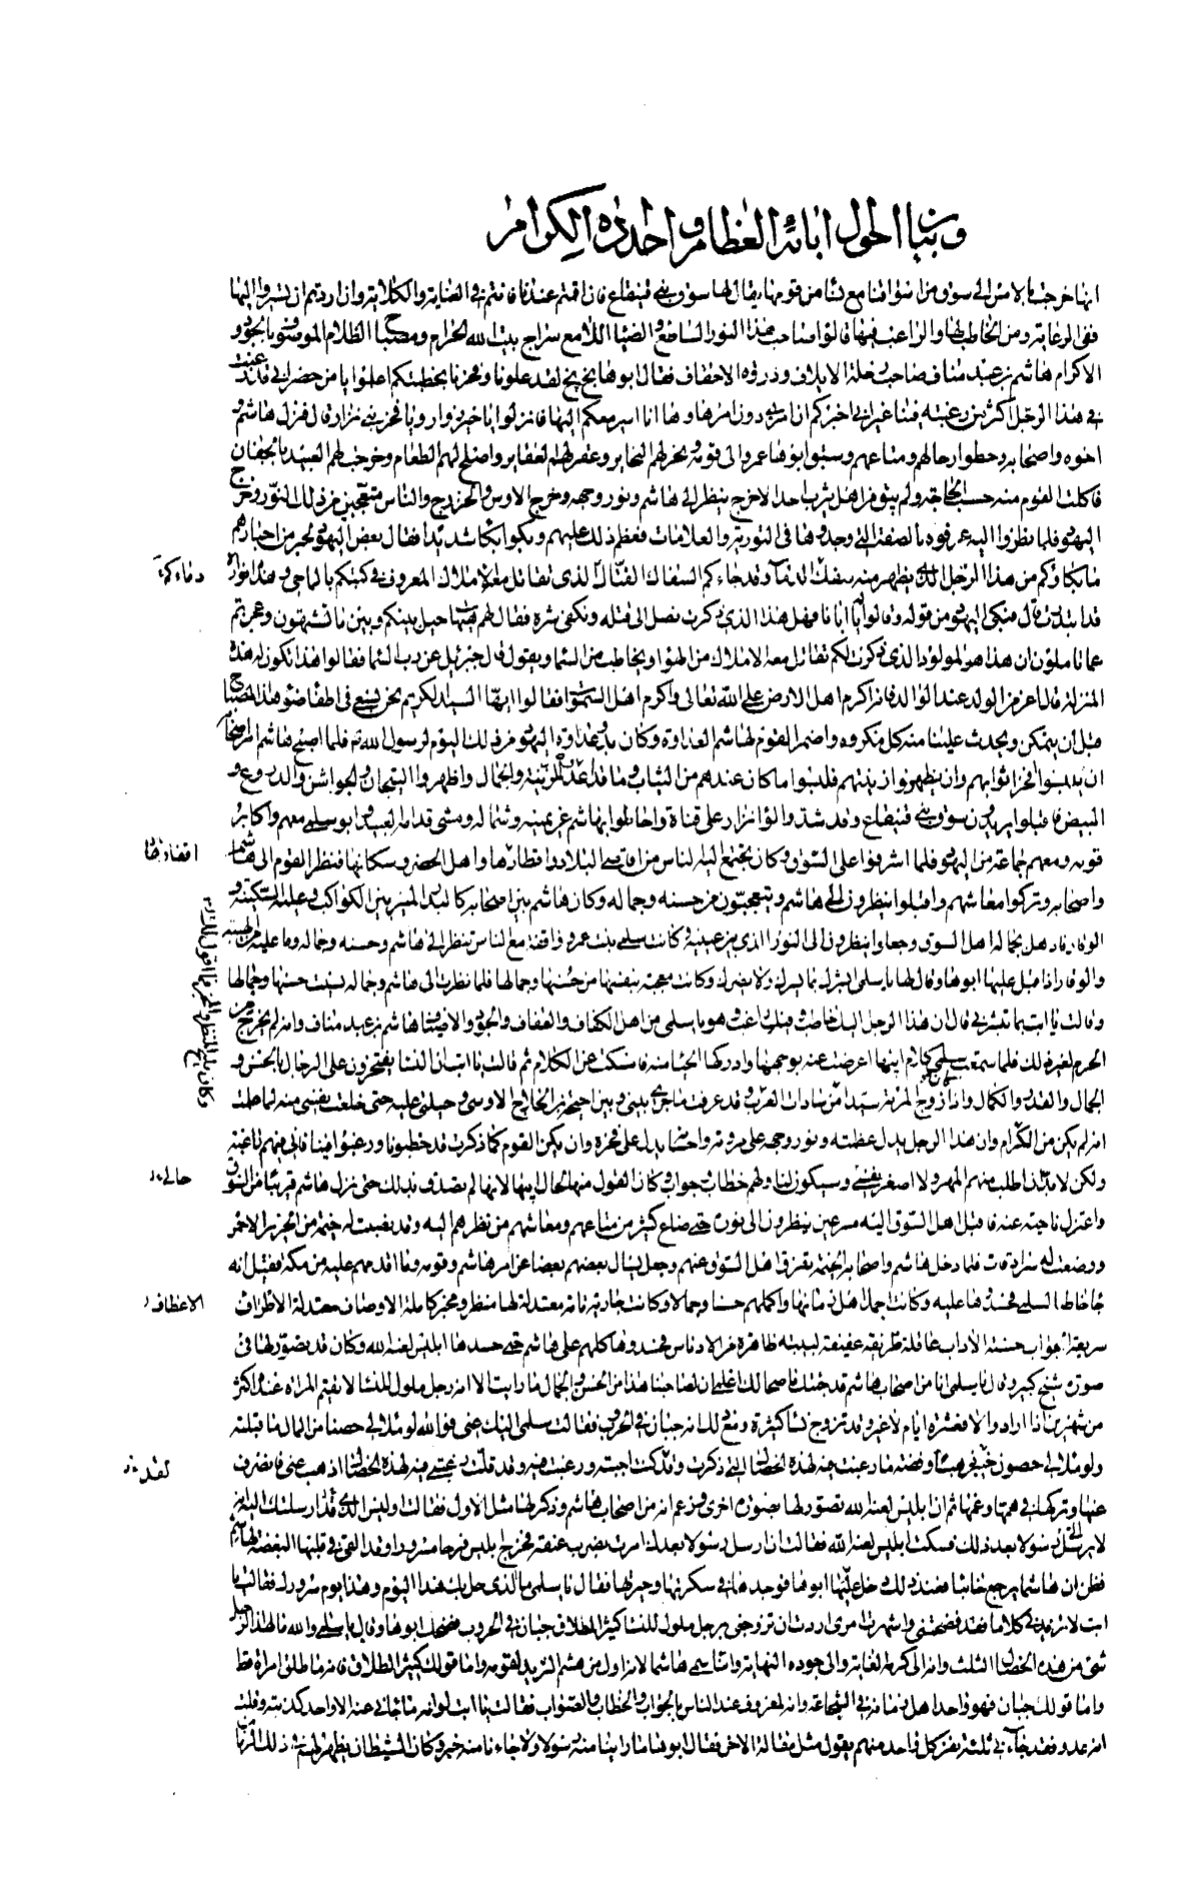 وبنيان احوال ابائه العظام واجداده الكرام
انها خرجت بالامس الى سوق من اسواقنا مع نسا من قومها يقال لها سوق بني قينقاع فان اقمتم عندنا فانتم في العناية والكلاية وان اردتم ان تسيروا اليها
ففي الرعاية ومن الخاطب لها والراغب فيها قالوا صاحب هذا النور الساطع والضيا اللامع سراج بيت الله الحرام ومصباح الظلام الموصوف بالجود و
الاكرام هاشم بن عبد مناف صاحب رحلة الايلاف وذروة الاحقاف فقال ابوها بخ بخ لقد علونا وفخرنا بخطبتكم اعلموا يا من حضر اني قد رغبت
في هذا الرجل اكثر من رغبته فينا غير اني اخبركم ان امرها دون امرها وها انا اسير معكم اليها فانزلوا يا خير زوار ويا فخر بني نزار قال فنزل هاشم و
اخوه واصحابه وحطوا رحالهم ومتاعهم وسبق ابوها عمرو الى قومه ونحر لهم النحاير وعقر لهم العقاير واصلح لهم الطعام وخرجت لهم العبيد بالجفان
فاكلت القوم منه حسب الحاجة ولم يبق من اهل يثرب احد الا خرج ينظر الى هاشم ونور وجهه وخرج الاوس والخزرج والناس متعجبين من ذلك النور وخرج
اليهود فلما نظروا اليه عرفوه بالصفة التي وجدوها في التورية والعلامات فعظم ذلك عليهم وبكوا بكاء شديدا فقال بعض اليهود لحبر من احبارهم
ما بكاؤكم من هذا الرجل الذي يظهر منه سفك الدماء وقد جاءكم السفاك القتال الذي تقاتل معه الاملاك المعروف في كتبكم بالماحي وهذا انواره
قد ابتدت قال فبكى اليهود من قوله وقالوا له يا ابانا فهل هذا الذي ذكرت نصل الى قتله ونكفى شره فقال لهم هيهات حيل بينكم وبين ما تشتهون وعجزتم
عما تاملون ان هذا هو المولود الذي ذكرت لكم تقاتل معه الاملاك من الهواء ويخاطب من السماء ويقول قال جبرئيل عن رب السماء فقالوا هذا تكون له هذه
المنزلة قال اعز من الولد عند الوالد فانه اكرم اهل الارض على الله تعالى واكرم اهل السموات فقالوا ايها السيد الكريم نحن نسعى في اطفاء ضوء هذا المصباح
قبل ان يتمكن ويحدث علينا منه كل مكروه واضمر القوم لهاشم العداوة وكان بدو عداوة اليهود من ذلك اليوم لرسول الله فلما اصبح هاشم امر اصحابه
ان يلبسوا افخر اثوابهم وان يظهروا زينتهم فلبسوا ما كان عندهم من الثياب وما قد اعدوه للزينة والجمال واظهروا التيجان والجواشن والدروع و
البيض فاقبلوا يريدون سوق بني قينقاع وقد شدوا لواء نزار على قناة واحاطوا بهاشم عن يمينه وشماله ومشى قدامه العبيد وابو سلمى معهم واكابر
قومه ومعهم جماعة من اليهود فلما اشرفوا على السوق وكان يجتمع اليه الناس من اقاصي البلاد واقطارها واهل الحضر وسكانها فنظر القوم الى هاشم
واصحابه وتركوا معاشهم واقبلوا ينظرون الى هاشم ويتعجبون من حسنه وجماله وكان هاشم بين اصحابه كالبدر المنير بين الكواكب وعليه السكينة و
الوقار فاذهل بجماله اهل السوق وجعلوا ينظرون الى النور الذي بين عينيه وكانت سلمى بنت عمرو واقفة مع الناس تنظر الى هاشم وحسنه وجماله وما عليه من الهيبة
والوقار اذ اقبل عليها ابوها وقال لها يا سلمى ابشرك بما يسرك ولا يضرك وكانت معجبة بنفسها من حسنها وجمالها فلما نظرت الى هاشم وجماله نسيت حسنها وجمالها
وقالت يا ابت بما تبشرني قال ان هذا الرجل اليك خاطب وفيك راغب وهو يا سلمى من اهل الكفاف والعفاف والجود والاضياف هاشم بن عبد مناف وانه لم يخرج من
الحرم لغير ذلك فلما سمعت سلمى كلام ابيها اعرضت عنه بوجهها وادركها الحياء منه فامسكت عن الكلام ثم قالت يا ابت ان النساء يفتخرون على الرجال بالحسن و
الجمال والقد والكمال واذا زوج المرئة سيدا من سادات العرب وقد عرفت ما جرى بيني وبين احيحة بن الجلاح الاوسي وحيلتي عليه حتى خلعت نفسي منه لما علمت
انه لم يكن من الكرام وان هذا الرجل يدل عظمته ونور وجهه على مروته واحسانه يدل على فخره وان يكن القوم كما ذكرت قد خطبونا ورغبوا فينا فاني فيهم راغبة
ولكن لا بد ان اطلب منهم المهر ولا اصغر نفسي وسيكون لنا ولهم خطاب وجواب وكان القول منها لحال ابيها لانها لم تصدق بذلك حتى نزل هاشم قريبا من السوق
واعتزل ناحية عنه فاقبل اهل السوق اليه مسرعين ينظرون الى نوره حتى ضاع كثير من متاعهم ومعاشهم من نظرهم اليه وقد نصبت له خيمة من الخز الاحمر
ووضعت له سرادقات فلما دخل هاشم واصحابه الخيمة تفرق اهل السوق عنهم وجعل يسال بعضهم بعضا عن امر هاشم وقومه وما اقدمهم عليه من مكة فقيل انه
جاء خاطبا لسلمى فحسدوها عليه وكانت اجمل اهل زمانها واكملهم حسنا وجمالا وكانت جارية تامة معتدلة لها منظر ومخبر كاملة الاوصاف معتدلة الاطراف
سريعة الجواب حسنة الاداب عاقلة ظريفة عفيفة لبيبة طاهرة من الادناس فحسدوها كلهم على هاشم حتى حسدها ابليس لعنه الله وكان قد تصور لها في
صورة شيخ كبير وقال يا سلمى انا من اصحاب هاشم قد جئتك ناصحا لك اعلمي ان لصاحبنا هذا من الحسن والجمال ما رايت الا انه رجل ملول للنساء لا تقيم المراة عنده اكثر
من شهرين اذا اراد والا فعشرة ايام لا غير وقد تزوج نساء كثيرة ومع ذلك انه جبان في الحروب فقالت سلمى اليك عني فوالله لو ملا لي حصنا من المال ما قبلته
ولو ملا لي حصون خيبر ذهبا وفضة ما رغبت فيه لهذه الخصال التي ذكرت وقد كنت اجبته ورغبت فيه وقد قلت رغبتي فيه لهذه الخصال اذهب عني فانصرف
عنها وتركها في همها وغمها ثم ان ابليس لعنه الله تصور لها بصورة اخرى وزعم انه من اصحاب هاشم وذكر لها مثل الاول فقالت اوليس الذي قد ارسلتك اليه
لا يرسل الي رسولا بعد ذلك فسكت ابليس لعنه الله فقالت ان ارسل رسولا بعدك امرت بضرب عنقه فخرج ابليس فرحا مسرورا وقد القى في قلبها البغضة لهاشم
فظن ان هاشما يرجع خائبا فعند ذلك دخل عليها ابوها فوجدها في سكرتها وحيرتها فقال يا سلمى ما الذي حل بك هذا اليوم وهذا يوم سرورك فقالت يا
ابت لا تزيدني كلاما فقد فضحتني واشهرت امري اردت ان تزوجني برجل ملول للنساء كثير الطلاق جبان في الحروب فضحك ابوها وقال يا سلمى والله ما لهذا الرجل
شئ من هذه الخصال الثلث وانه الى كرمه الغاية والى جوده النهاية وانما سمى هاشما لانه اول من هشم الثريد لقومه واما قولك كثير الطلاق فانه ما طلق امراة قط
واما قولك جبان فهو واحد اهل زمانه في الشجاعة وانه لمعروف عند الناس بالجواب والخطاب والصواب فقالت يا ابت لو انه ما جاءني عنه الا واحد كذبته وقلت
انه عدو فقد جاءني ثلثة نفر كل واحد منهم يقول مثل مقالة الاخر فقال ابوها ما راينا منه رسولا ولا جاءنا منه خبر وكان الشيطان يظهر لهم في ذلك الزمان
دماءكم
اقصاء
حالي
الاعطاف
لقد